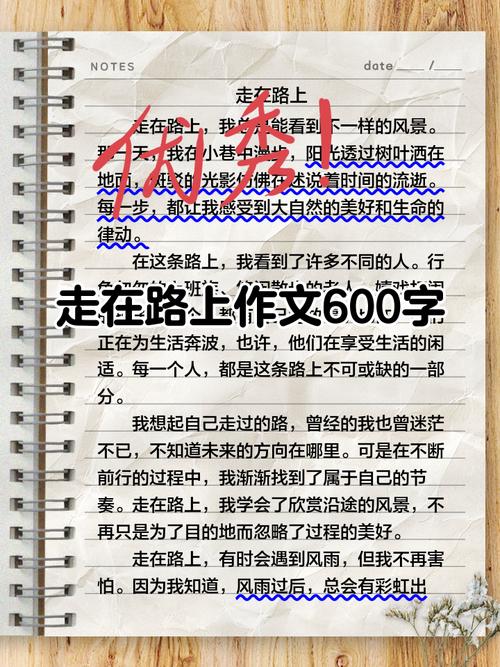 NOTES
date ____ /____
走在路上
走在路上，我总是能看到不一样的风景。
那一天，我在小巷中漫步，阳光透过树叶洒在
地面，斑驳的光影仿佛在述说着时间的流逝。
每一步，都让我感受到大自然的美好和生命的
律动。
优秀!
在这条路上，我看到了许多不同的人。行
走在路上作文600字
正在为生活奔波，也许，他们在享受生活的闲
适。每一个人，都是这条路上不可或缺的一部
分。
我想起自己走过的路，曾经的我也曾迷茫
不已，不知道未来的方向在哪里。可是在不断
前行的过程中，我渐渐找到了属于自己的节
奏。走在路上，我学会了欣赏沿途的风景，不
再只是为了目的地而忽略了过程的美好。
走在路上，有时会遇到风雨，但我不再害
怕。因为我知道，风雨过后，总会有彩虹出